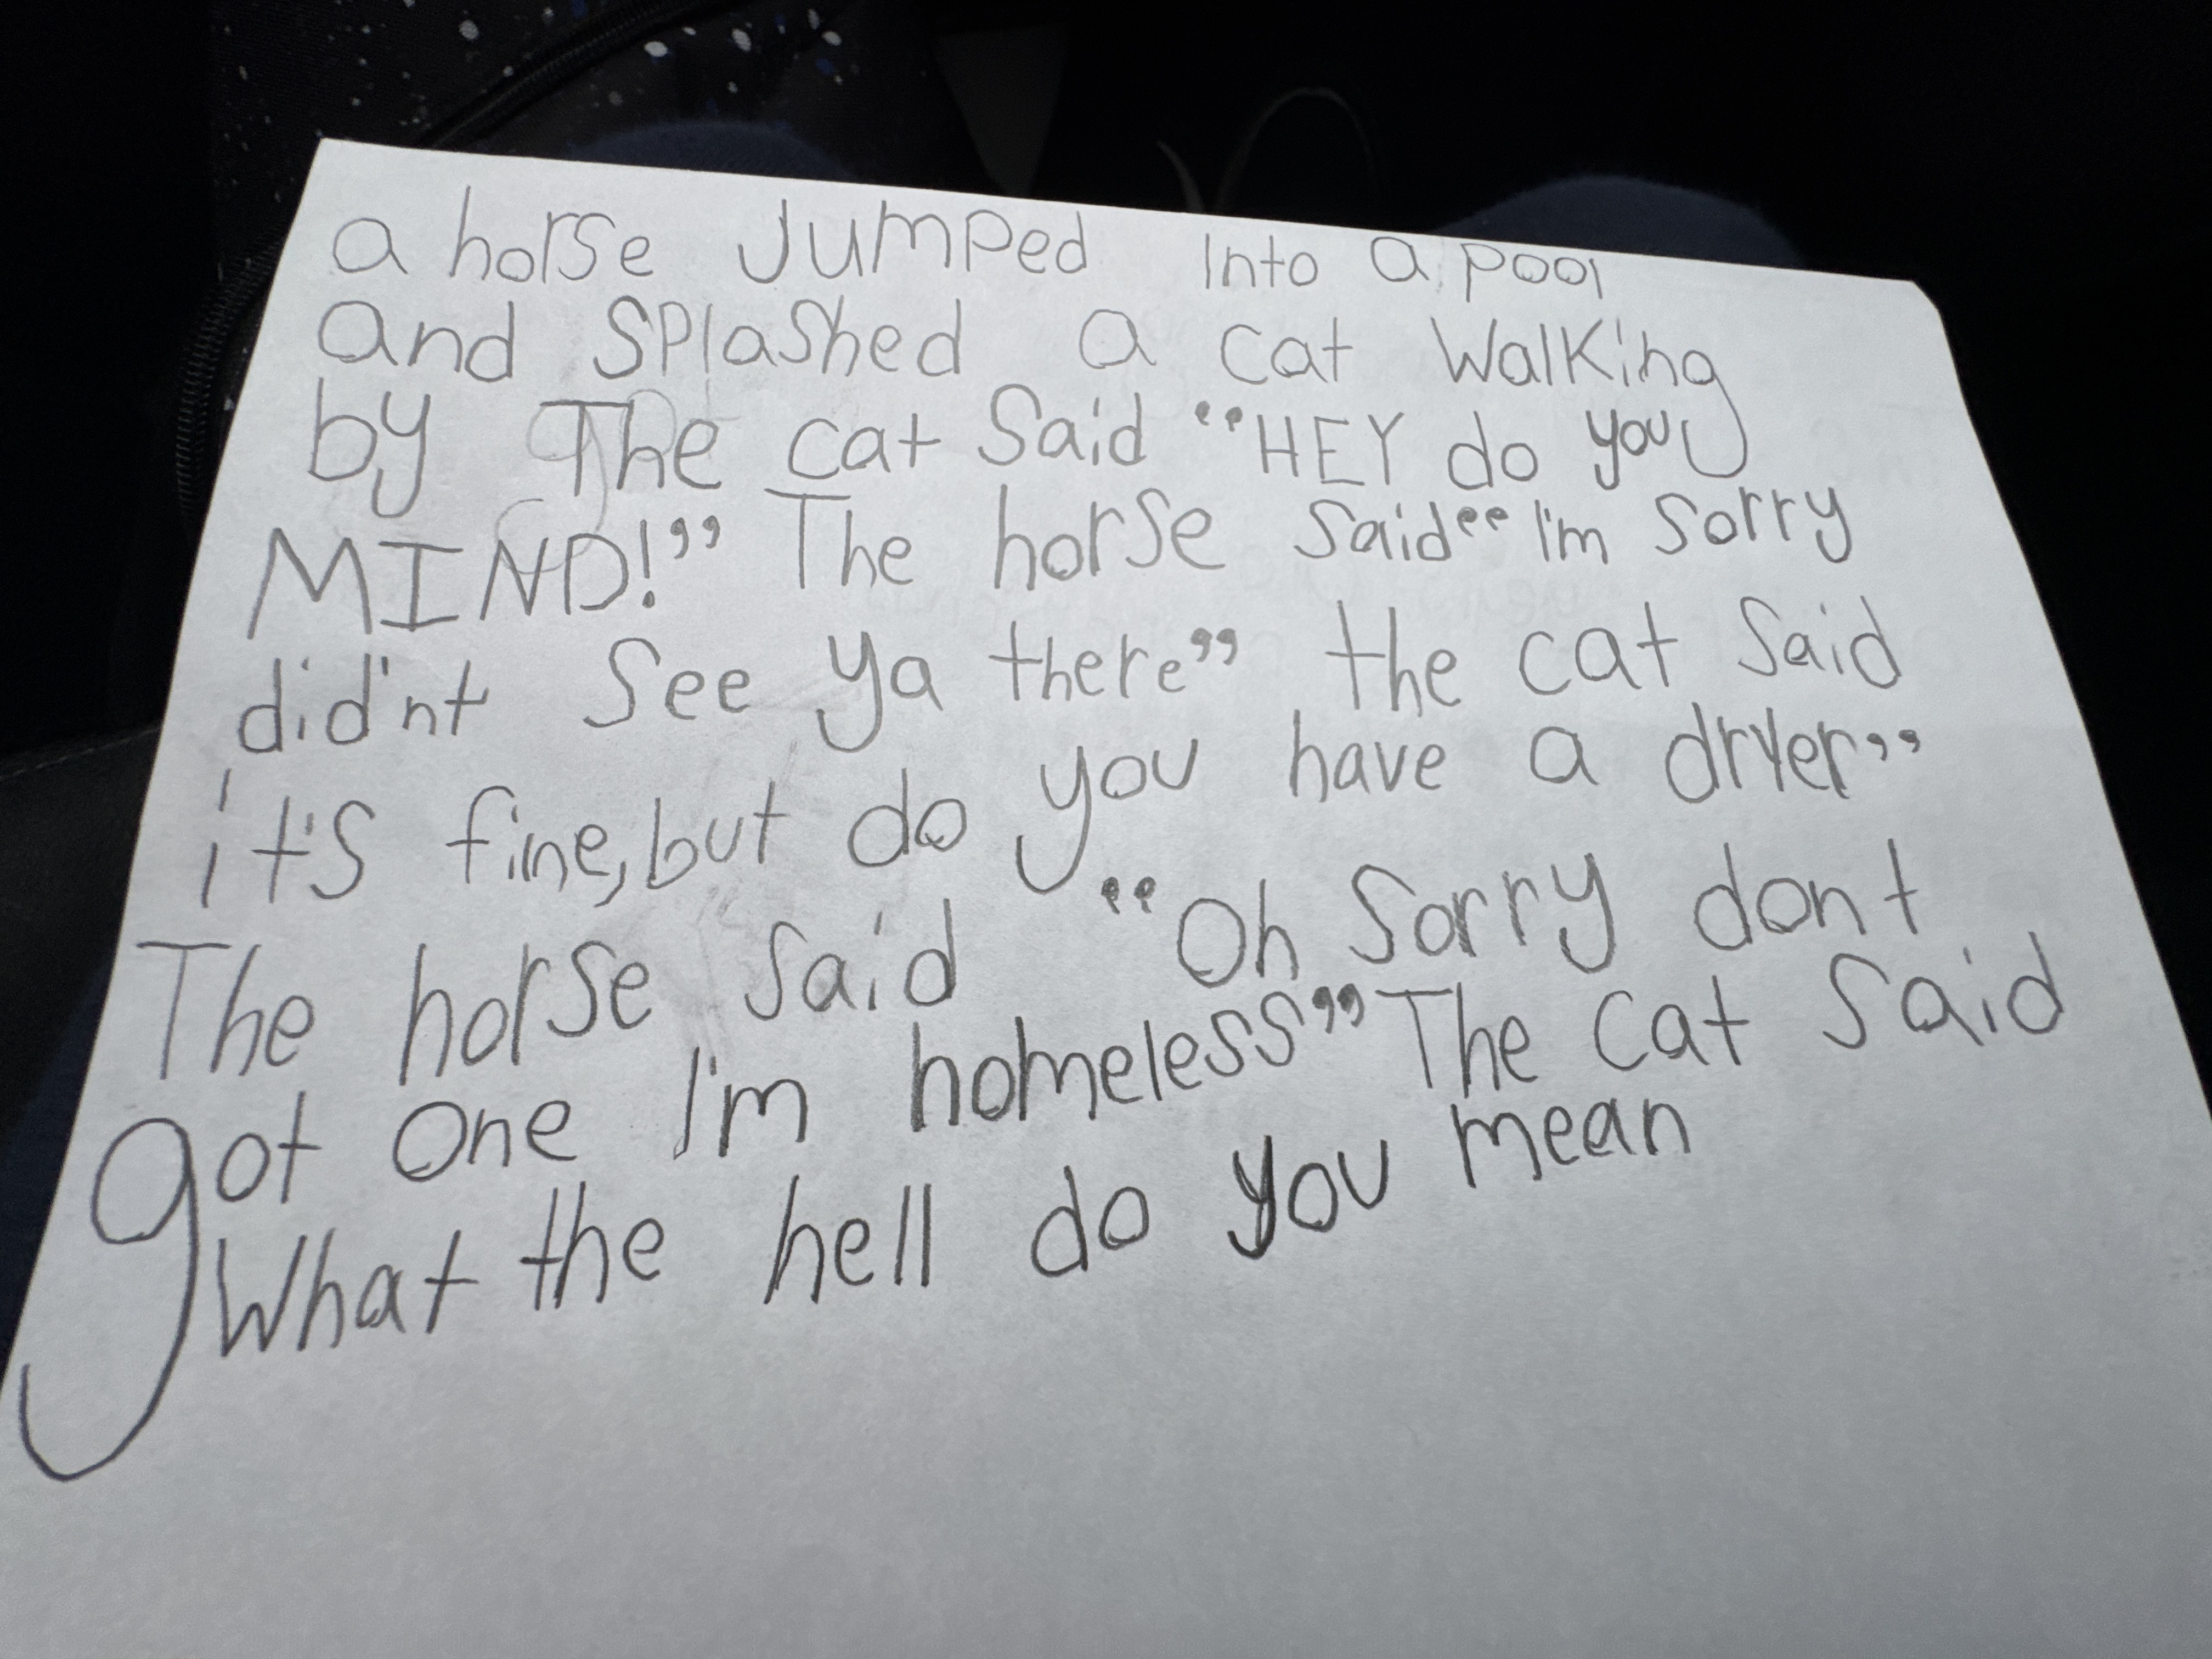 a horse Jumped Into a pool
and Splashed a cat Walking
by The cat Said “HEY do you
MIND!” The horse Said “I'm Sorry
did'nt See ya there” the cat Said
it's fine, but do you have a dryer”
The horse Said “Oh Sorry dont
got one I'm homeless” The cat Said
What the hell do you mean